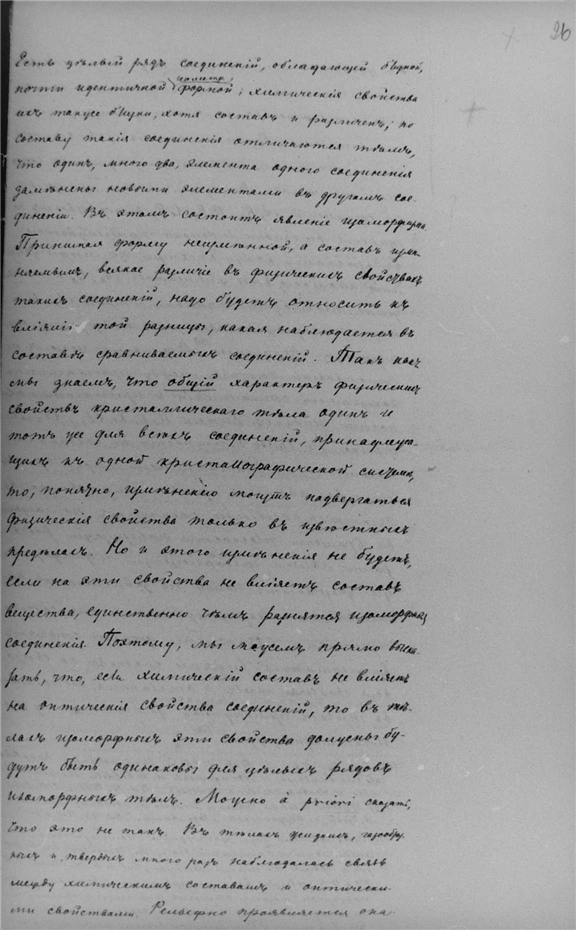 26
Есть цѣлый рядъ соединеній, обладающей бѣдной,
почти идентичной формой; химическія свойства
ихъ также близки, хотя составъ и различенъ; по
составу такія соединенія отличаются тѣмъ,
что одинъ, много два, элемента одного соединенія
замѣнены новыми элементами въ другомъ сое-
диненіи. Въ этомъ состоитъ явленіе изоморфизма.
Принимая форму неизмѣнной, а составъ измѣ-
няемымъ, всякое различіе въ физическихъ свойствахъ
такихъ соединеній, надо будетъ относить къ
вліянію той разницы, какая наблюдается въ
составѣ сравниваемыхъ соединеній. Такъ какъ
мы знаемъ, что общій характеръ физическихъ
свойствъ кристаллическаго тѣла одинъ и
тотъ же для всѣхъ соединеній, принадлежа-
щихъ къ одной кристаллографической системѣ,
то, понятно, измѣненію могутъ подвергаться
физическія свойства только въ извѣстныхъ
предѣлахъ. Но и этого измѣненія не будетъ,
если на эти свойства не вліяетъ составъ
вещества, единственно чѣмъ разнятся изоморфныя
соединенія. Поэтому, мы можемъ прямо выска-
зать, что, если химическій составъ не вліяетъ
на оптическія свойства соединеній, то въ тѣ-
лахъ изоморфныхъ эти свойства должны бу-
дутъ быть одинаковы для цѣлыхъ рядовъ
изоморфныхъ тѣлъ. Можно à priori сказать,
что это не такъ. Въ тѣлахъ жидкихъ, газообраз-
ныхъ и твердыхъ много разъ наблюдалась связь
между химическимъ составомъ и оптически-
ми свойствами. Рельефно проявляется она